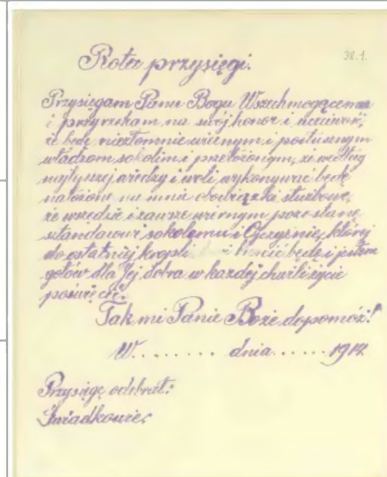 38.1.
Rota przysięgi.
Przysięgam Panu Bogu Wszechmogącemu
i przyrzekam na swój honor i uczciwość,
że będę niezłomnie wiernym i posłusznym
władzom sokolim i przełożonym, że według
najlepszej wiedzy i woli wykonywać będę
nałożone na mnie obowiązki służbowe,
że wszędzie i zawsze wiernym pozostanę
sztandarowi sokolemu i Ojczyźnie, której
do ostatniej kropli krwi bronić będę i jestem
gotów dla Jej dobra w każdej chwili życie
poświęcić.
Tak mi Panie Boże dopomóż!
W......... dnia...... 1914.
Przysięgę odebrał:
Świadkowie: